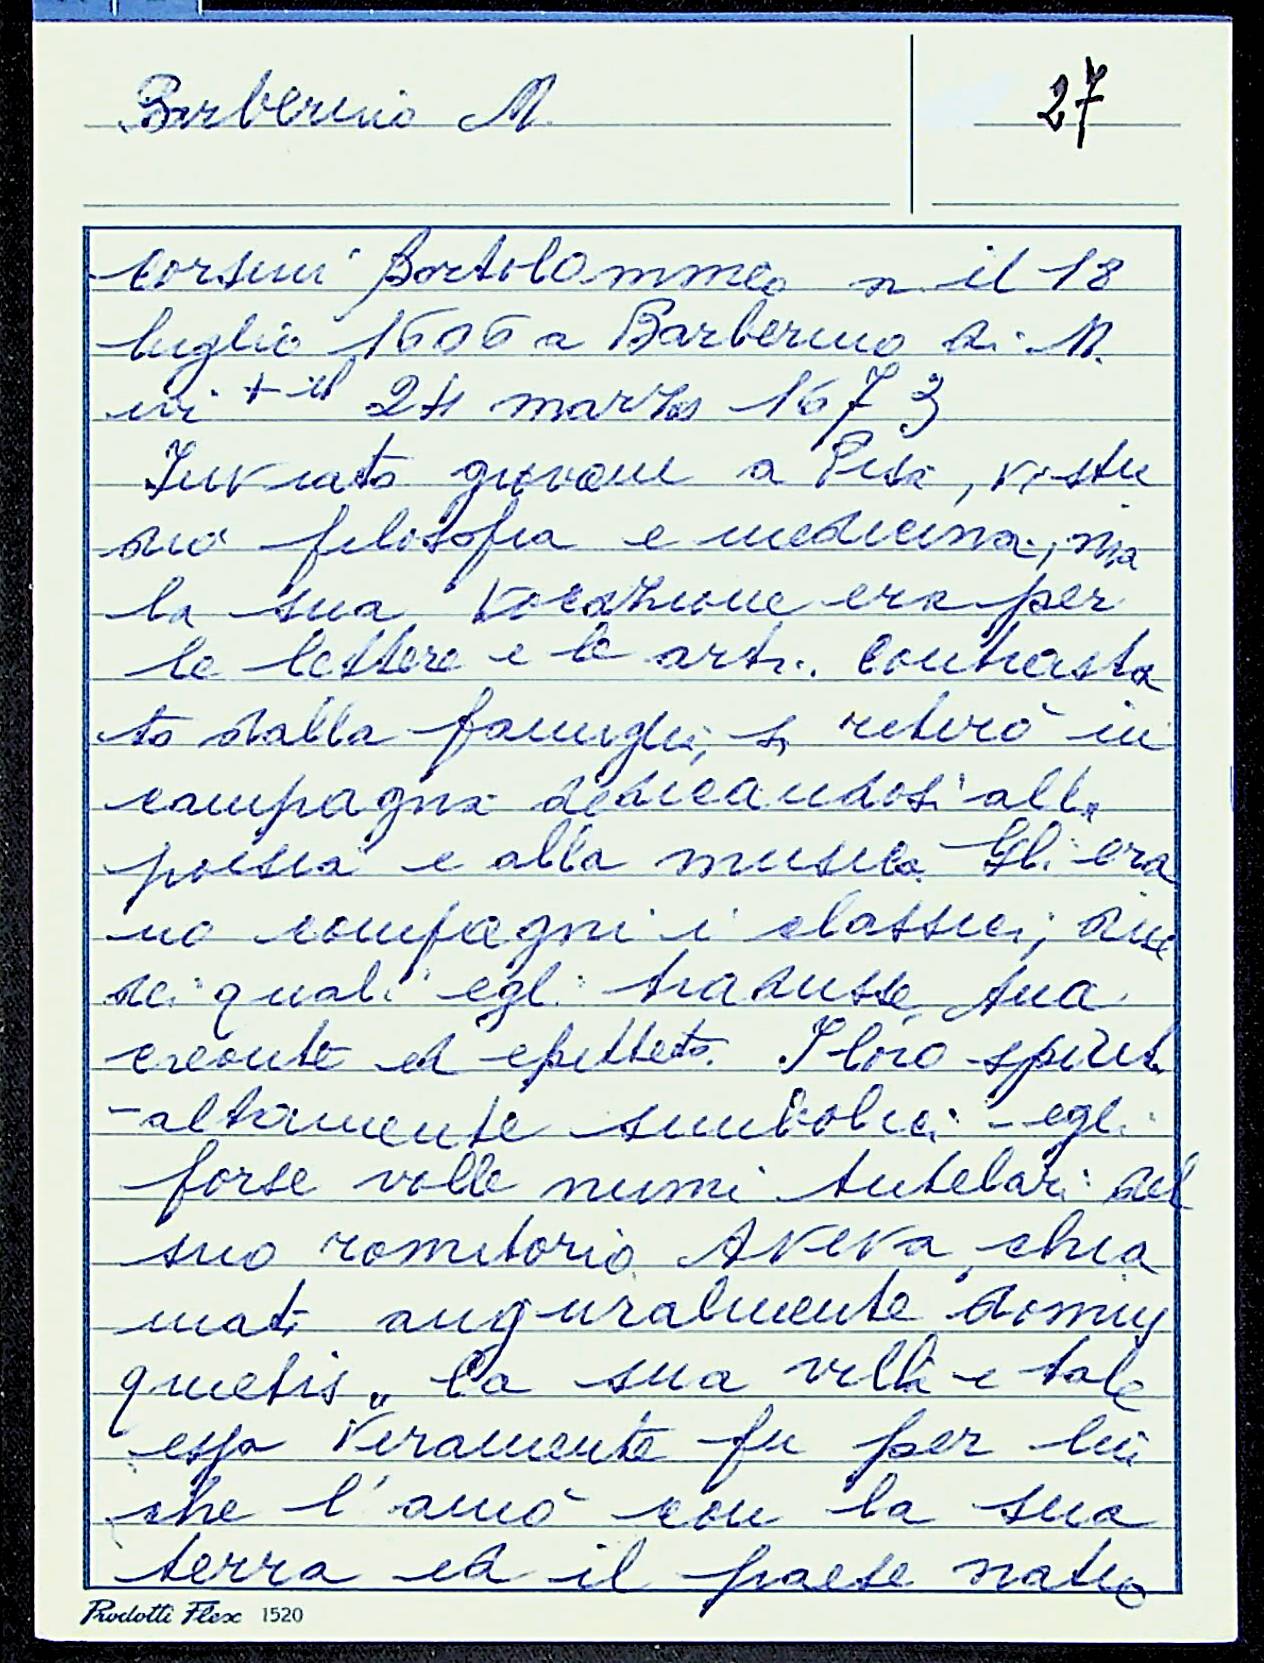 Barberino M.
27
Corsini Bartolommeo n. il 18
luglio 1606 a Barberino di M.
ivi + il 24 marzo 1673
Inviato giovane a Pisa, vi stu
diò filosofia e medicina, ma
la sua vocazione era per
le lettere e le arti. Contrasta
to dalla famiglia, si ritirò in
campagna dedicandosi alla
poesia e alla musica. Gli era
no compagni i classici, due
dei quali egli tradusse, Ana
creonte ed epitteto. I loro spiriti
- altamente simbolici - egli
forse volle numi tutelari del
suo romitorio. Aveva chia
mata auguralmente "domus
quietis" la sua villa e tale
essa veramente fu per lui
che l'amò con la sua
terra ed il paese natio
Prodotti Flex 1520